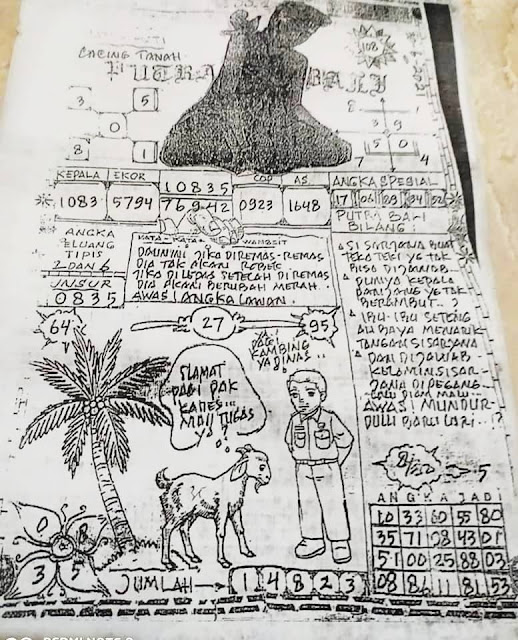 CACING TANAH
PUTRA BALI
108
3 5
0
8 1
8
3 9
5 0
7 4
KEPALA EKOR COP AS
1083 5794 10835 0323 1648
76942
ANGKA SPESIAL
17 06 23 04 52
PUTRA BALI
BILANG:
ANGKA
PELUANG
TIPIS
2 DAN 6
UNSUR
0835
KATA-KATA WANGSIT
DAUN INI JIKA DIREMAS-REMAS
DIA TAK AKAN ROBEK
JIKA DILEPAS SETELAH DIREMAS
DIA AKAN BERUBAH MERAH..
AWAS! ANGKA LAWAN.
SI SARJANA BUAT
TEKA TEKI YG TAK
BISA DIJAWAB..
PUNYA KEPALA
PANJANG YG TAK
BERAMBUT..?
IBU-IBU SETENG
AH BAYA MENARIK
TANGAN SI SARJANA
DAN DIJAWAB
KELAMIN SI SAR-
JANA DIPEGANG..
LALU DIAM MALU..
AWAS! MUNDUR
DULU BARU LARI..!?
64 27 95
PAGI
KAMBING
YA DINAS..
SLAMAT
PAGI PAK
KADES...
MAU TUGAS
YA..?
5
0 8
3 5
JUMLAH 1 4 8 2 3
ANGKA JADI
10 33 60 55 80
35 71 08 43 01
51 00 25 88 03
08 86 11 81 53